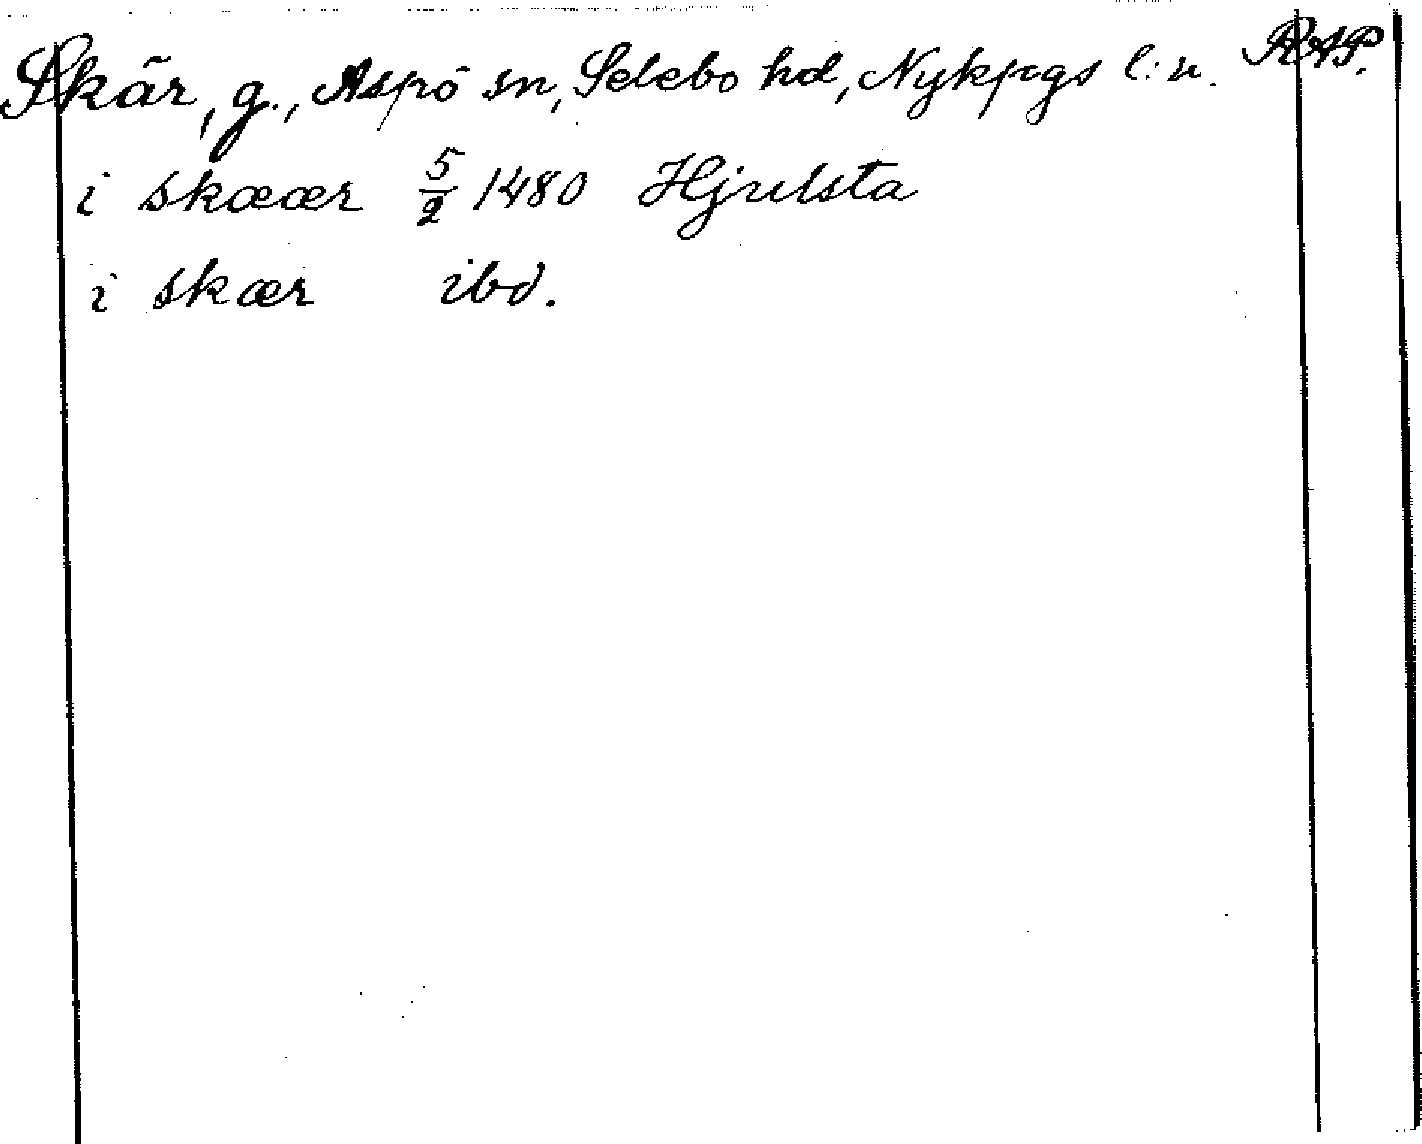 Skär, g., Aspö sn, Selebo hd, Nykpgs l:n. RAP.
i skæær 5/2 1480 Hjulsta
i skær ibd.